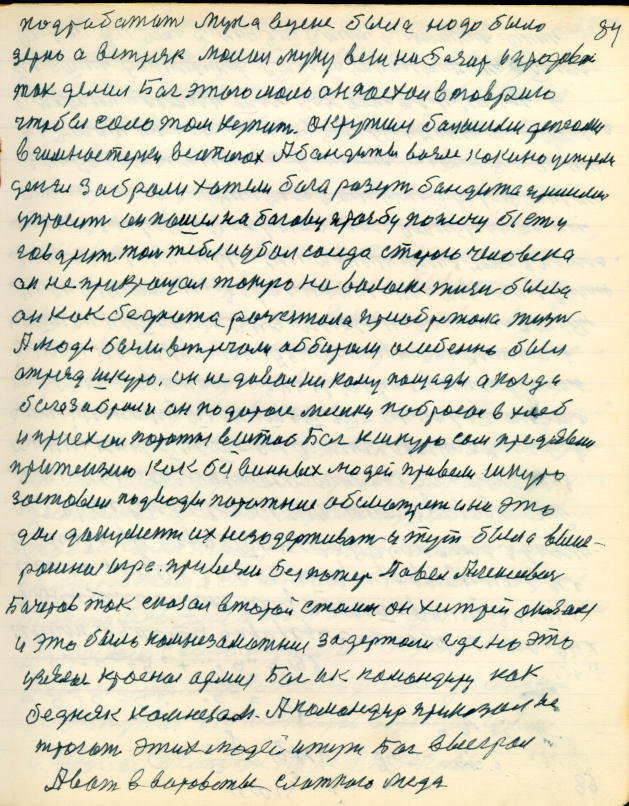 подработат мука вцене была надо было 84
зерно а ветряк молол муку вези на базар и продават
так делил Баг этого мало он поехал в таврию
чтобы сало там купит. окружили большими денгами
в гимнастерки всапогах А бандиты возле
денги забрали хотели бага разут бандита
упросит он пошел на багову прозбу почему бы ты
говарит там тебя избол сюда старого человека
он не прикращал на валоске жизн была
он как беднота расчетала приобретала жизн
А люди были встречали аббирали особенно был
отряд шкуро. он не давал ни кому пощады а когда
бага забрали он подороге мешки побросал в хлеб
и приехали вштаб Баг к шкуро сам предявил
притензию как без винных людей привели шкуро
заставил подводы обсматрет и на это
дал документ их незадерживат и тут была выи-
рошная игра. привезли без потер Павел Алексеевич
Бачуров так сказал второй сталин он хитрей оказался
и это было комнезаможний задержали где на это
узнала красная армия Баг ик командиру как
бедняк комнезам. А командир приказал не
трогат этих людей и тут Баг выеграл
А вот в воровстве слаткого меда